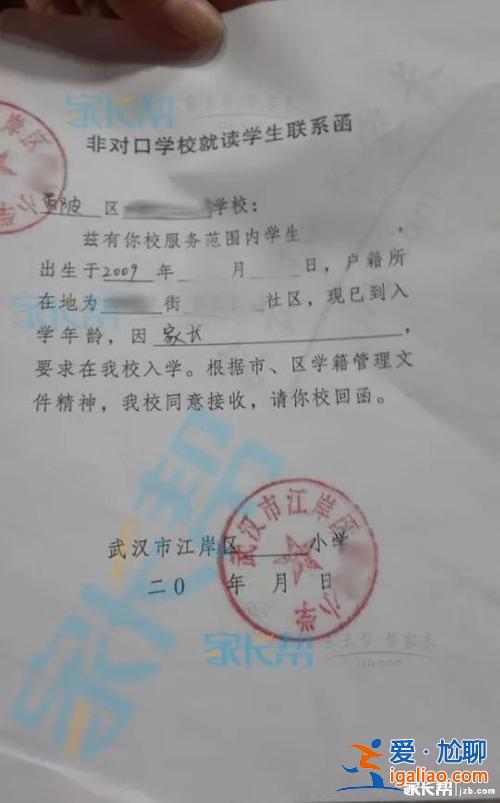 家长帮 家长帮 帮家长
jzb.com
江岸区
小学
非对口学校就读学生联系函
黄陂 区 学校：
兹有你校服务范围内学生 ，
出生于2009 年 月 日，户籍所
在地为 街 社区，现已到入
学年龄，因 家长 ，
要求在我校入学。根据市、区学籍管理文
件精神，我校同意接收，请你校回函。
家长帮
武汉市江岸区 小学
武汉市江岸区
小学
二0 年 月 日
家长帮 家长帮 帮家长
jzb.com
爱·尬聊
igaliao.com
家长帮 jzb.com